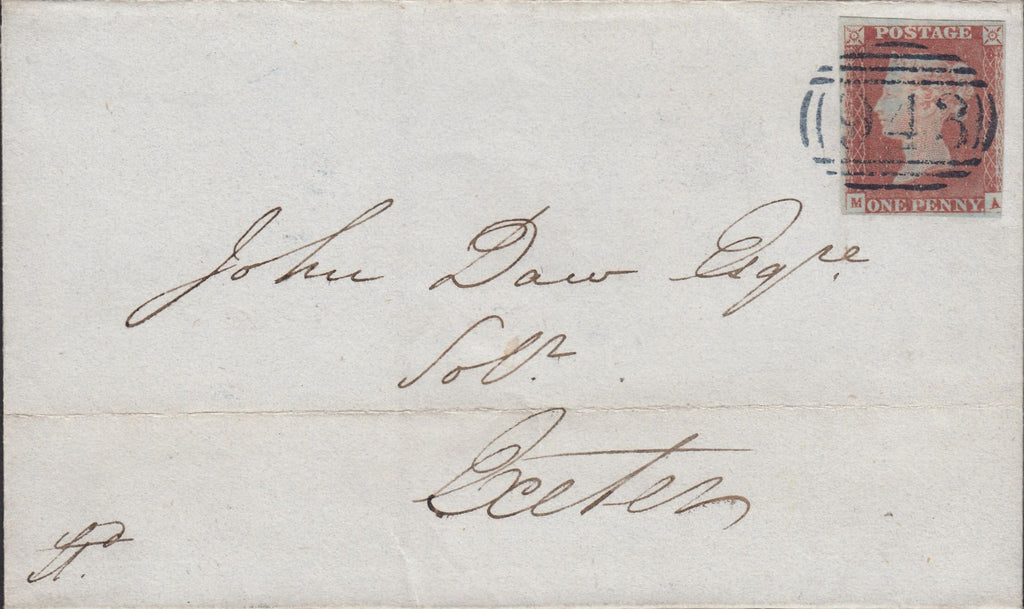 POSTAGE
943
M ONE PENNY. A
John Daw Esqre
Solr.
Exeter